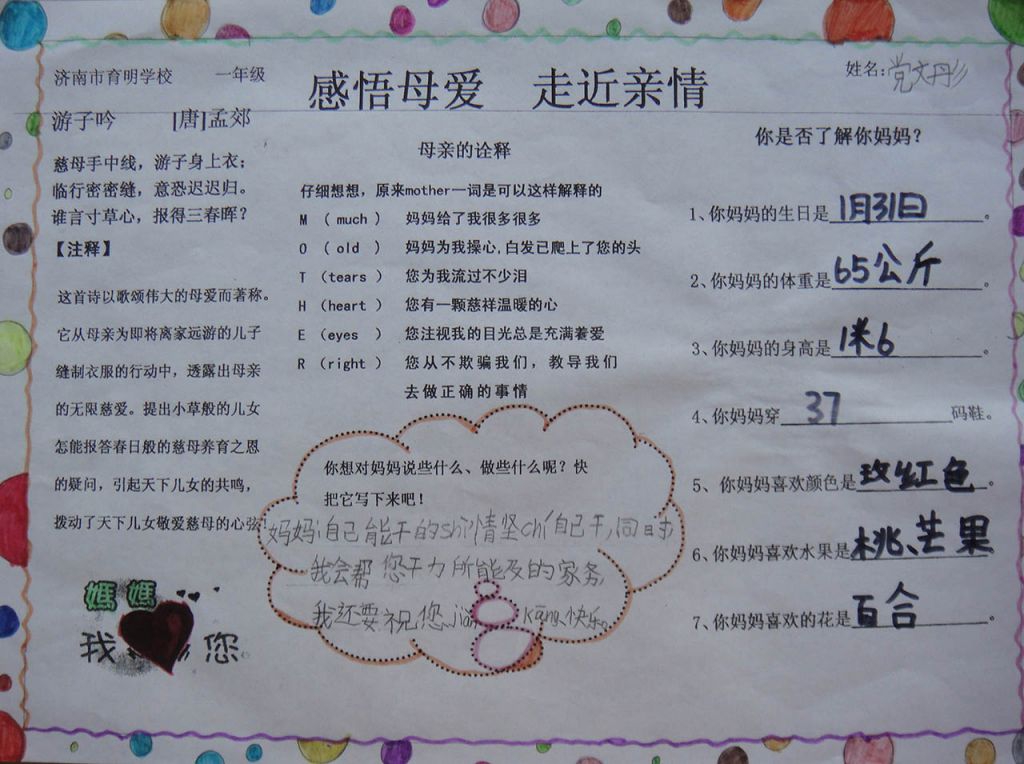 济南市育明学校 一年级
感悟母爱 走近亲情
姓名:党文丹彡
游子吟 [唐]孟郊
慈母手中线，游子身上衣；
临行密密缝，意恐迟迟归。
谁言寸草心，报得三春晖？
【注释】
这首诗以歌颂伟大的母爱而著称。
它从母亲为即将离家远游的儿子
缝制衣服的行动中，透露出母亲
的无限慈爱。提出小草般的儿女
怎能报答春日般的慈母养育之恩
的疑问，引起天下儿女的共鸣，
拨动了天下儿女敬爱慈母的心弦!
媽媽
我 您
母亲的诠释
仔细想想，原来mother一词是可以这样解释的
M （much） 妈妈给了我很多很多
O （old ） 妈妈为我操心,白发已爬上了您的头
T （tears） 您为我流过不少泪
H （heart） 您有一颗慈祥温暖的心
E （eyes ） 您注视我的目光总是充满着爱
R （right） 您从不欺骗我们，教导我们
去做正确的事情
你想对妈妈说些什么、做些什么呢？快
把它写下来吧！
妈妈:自己能干的shì情坚chí自己干,同时
我会帮您干力所能及的家务,
我还要祝您jiàn kāng、快乐。
你是否了解你妈妈？
1、你妈妈的生日是1月31日。
2、你妈妈的体重是65公斤。
3、你妈妈的身高是1米6。
4、你妈妈穿37码鞋。
5、你妈妈喜欢颜色是玫红色。
6、你妈妈喜欢水果是桃、芒果。
7、你妈妈喜欢的花是百合。